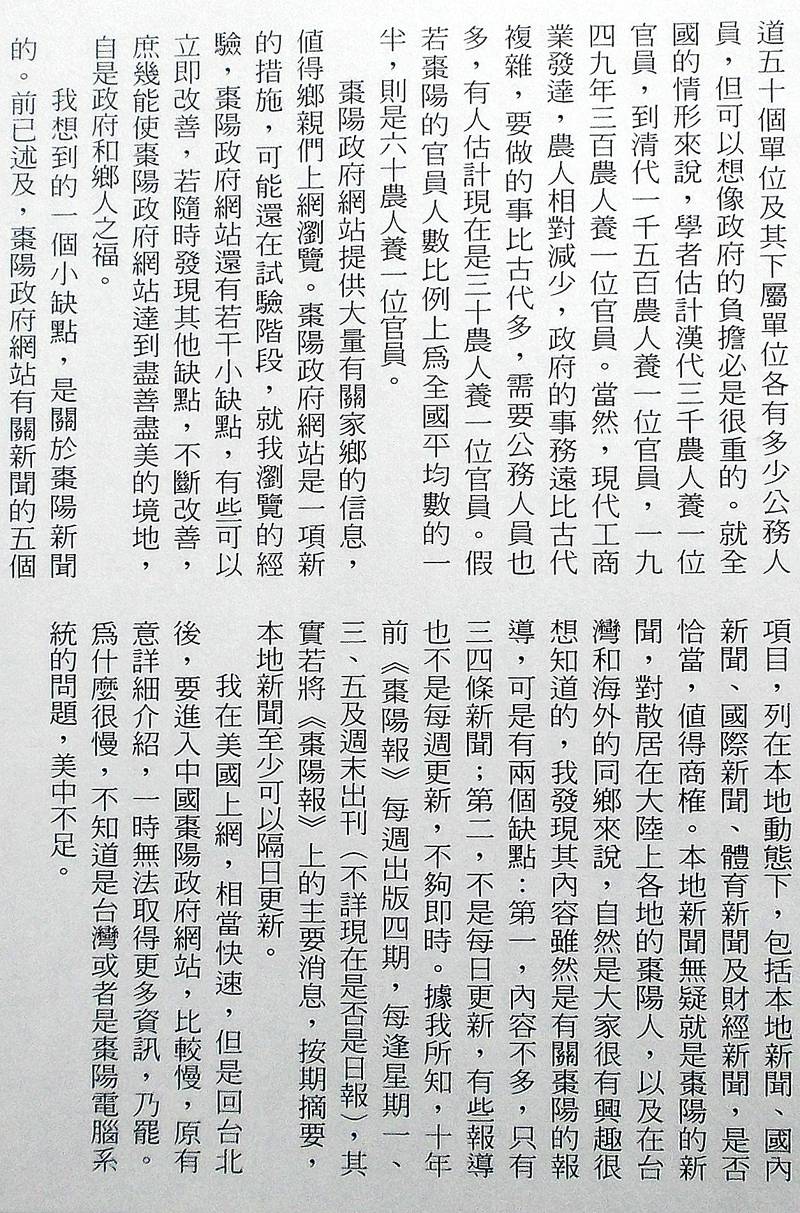 道五十個單位及其下屬單位各有多少公務人
員，但可以想像政府的負擔必是很重的。就全
國的情形來說，學者估計漢代三千農人養一位
官員，到清代一千五百農人養一位官員，一九
四九年三百農人養一位官員。當然，現代工商
業發達，農人相對減少，政府的事務遠比古代
複雜，要做的事比古代多，需要公務人員也
多，有人估計現在是三十農人養一位官員。假
若棗陽的官員人數比例上爲全國平均數的一
半，則是六十農人養一位官員。
棗陽政府網站提供大量有關家鄉的信息，
值得鄉親們上網瀏覽。棗陽政府網站是一項新
的措施，可能還在試驗階段，就我瀏覽的經
驗，棗陽政府網站還有若干小缺點，有些可以
立即改善，若隨時發現其他缺點，不斷改善，
庶幾能使棗陽政府網站達到盡善盡美的境地，
自是政府和鄉人之福。
我想到的一個小缺點，是關於棗陽新聞
的。前已述及，棗陽政府網站有關新聞的五個
項目，列在本地動態下，包括本地新聞、國內
新聞、國際新聞、體育新聞及財經新聞，是否
恰當，值得商榷。本地新聞無疑就是棗陽的新
聞，對散居在大陸上各地的棗陽人，以及在台
灣和海外的同鄉來說，自然是大家很有興趣很
想知道的，我發現其內容雖然是有關棗陽的報
導，可是有兩個缺點：第一，內容不多，只有
三四條新聞；第二，不是每日更新，有些報導
也不是每週更新，不夠即時。據我所知，十年
前《棗陽報》每週出版四期，每逢星期一、
三、五及週末出刊（不詳現在是否是日報），其
實若將《棗陽報》上的主要消息，按期摘要，
本地新聞至少可以隔日更新。
我在美國上網，相當快速，但是回台北
後，要進入中國棗陽政府網站，比較慢，原有
意詳細介紹，一時無法取得更多資訊，乃罷。
爲什麼很慢，不知道是台灣或者是棗陽電腦系
統的問題，美中不足。